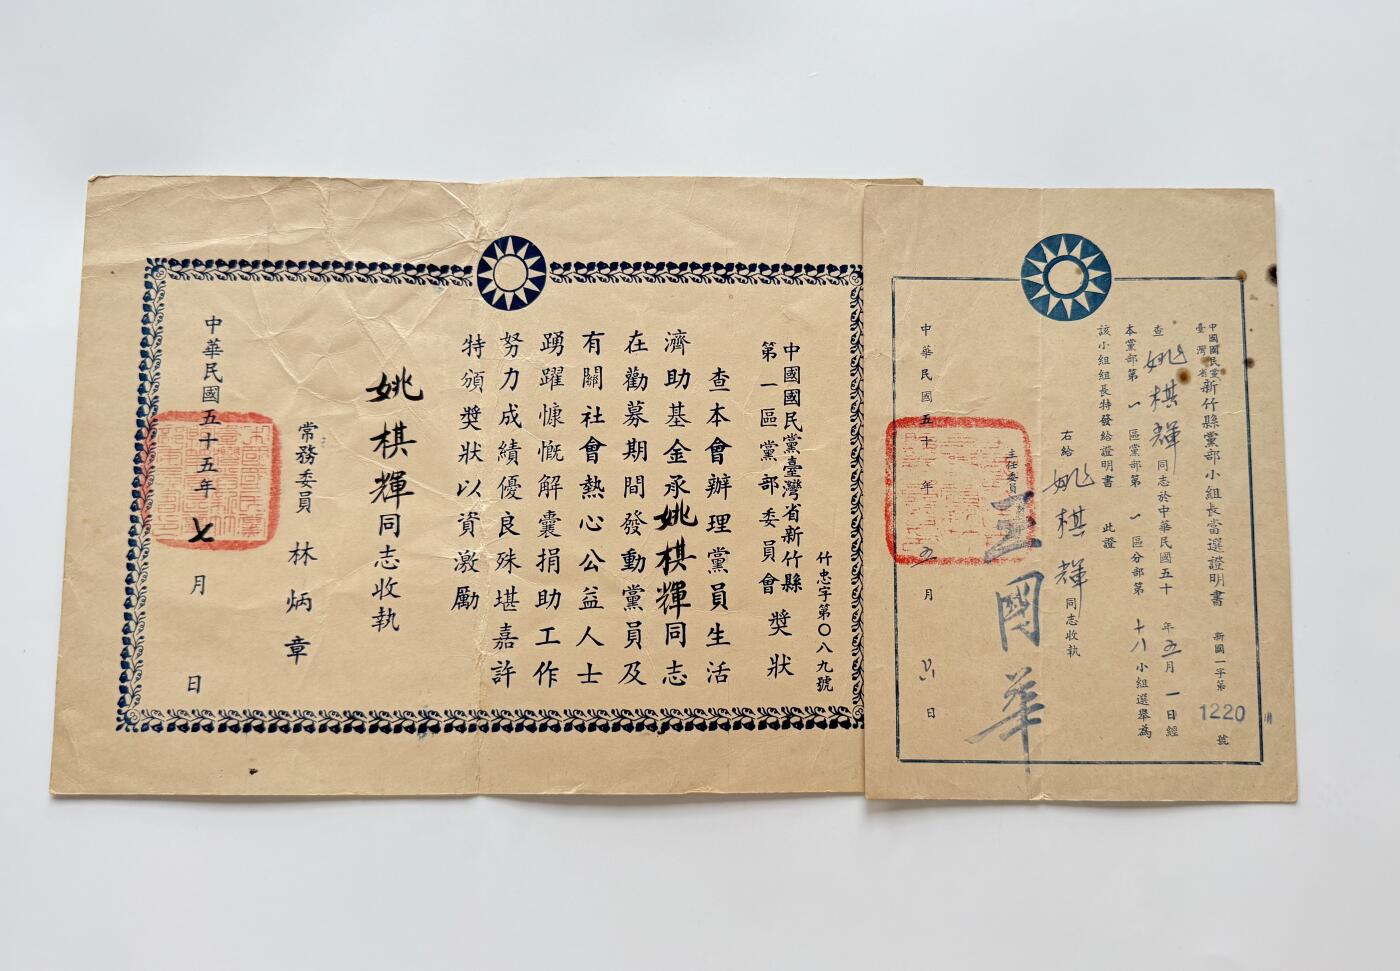 竹忠字第〇八九號
中國國民黨臺灣省新竹縣
第一區黨部委員會
獎狀
查本會辦理黨員生活
濟助基金承姚棋輝同志
在勸募期間發動黨員及
有關社會熱心公益人士
踴躍慷慨解囊捐助工作
努力成績優良殊堪嘉許
特頒獎狀以資激勵
姚棋輝同志收執
常務委員 林炳章
中華民國五十五年七月 日
中國國民黨
臺灣省
新竹縣黨部小組長當選證明書
新國一字第1220號
查姚棋輝同志於中華民國五十 年五月一日經
本黨部第一區黨部第一區分部第十八小組選舉為
該小組組長特發給證明書 此證
右給姚棋輝同志收執
主任委員 王國華
中華民國五十 年五月 日